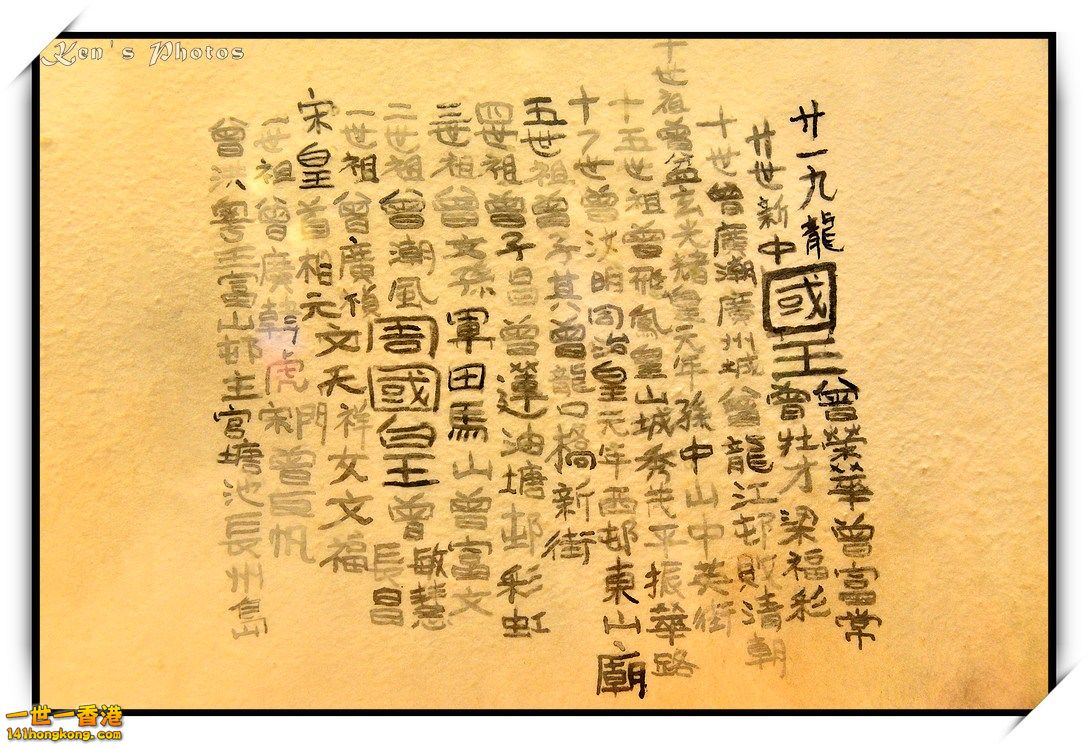 Ken's Photos
廿一九龍國王曾榮華曾富常
廿世新中國王曾壯才梁福彩
十世曾廣潮廣州城曾龍江邨敗清朝
十世祖曾盆玄光緒皇元年孫中山中英街
十五世祖曾飛鳳皇山城秀先平振華路
十乃世曾洪明同治皇元年西邨東山廟
五世祖曾子其曾龍口橋新街
四世祖曾子昌曾蓮油塘邨彩虹
三世祖曾文孫軍田馬山曾富文
二世祖曾潮風周國皇王曾敏慧長昌
一世祖曾廣禎文天祥女文福
宋皇首相元門曾巨帆
一世祖曾廣 虎宋
曾洪 邨主官塘 長州島
一世一香港
141hongkong.com